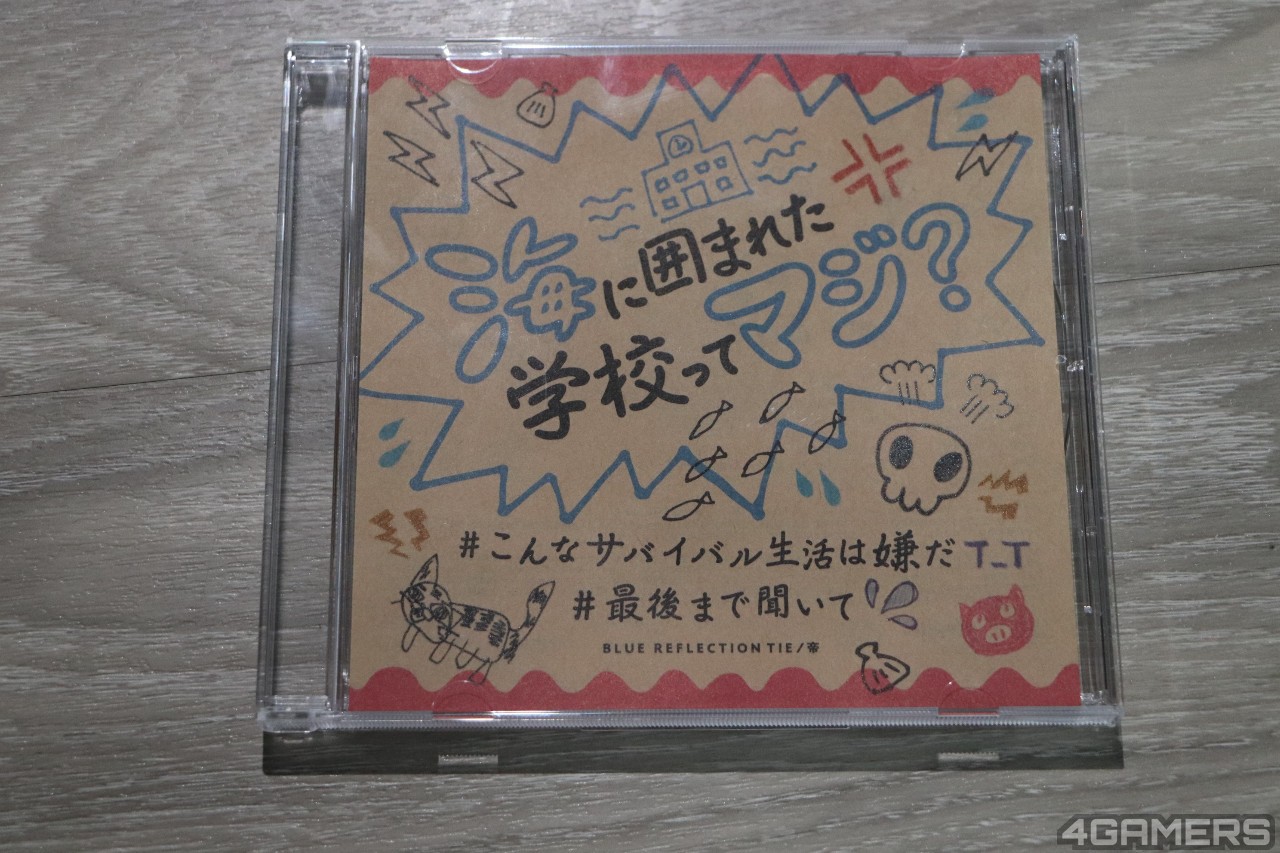 海に囲まれた
学校ってマジ?
#こんなサバイバル生活は嫌だ T_T
#最後まで聞いて
BLUE REFLECTION TIE/帝
4GAMERS